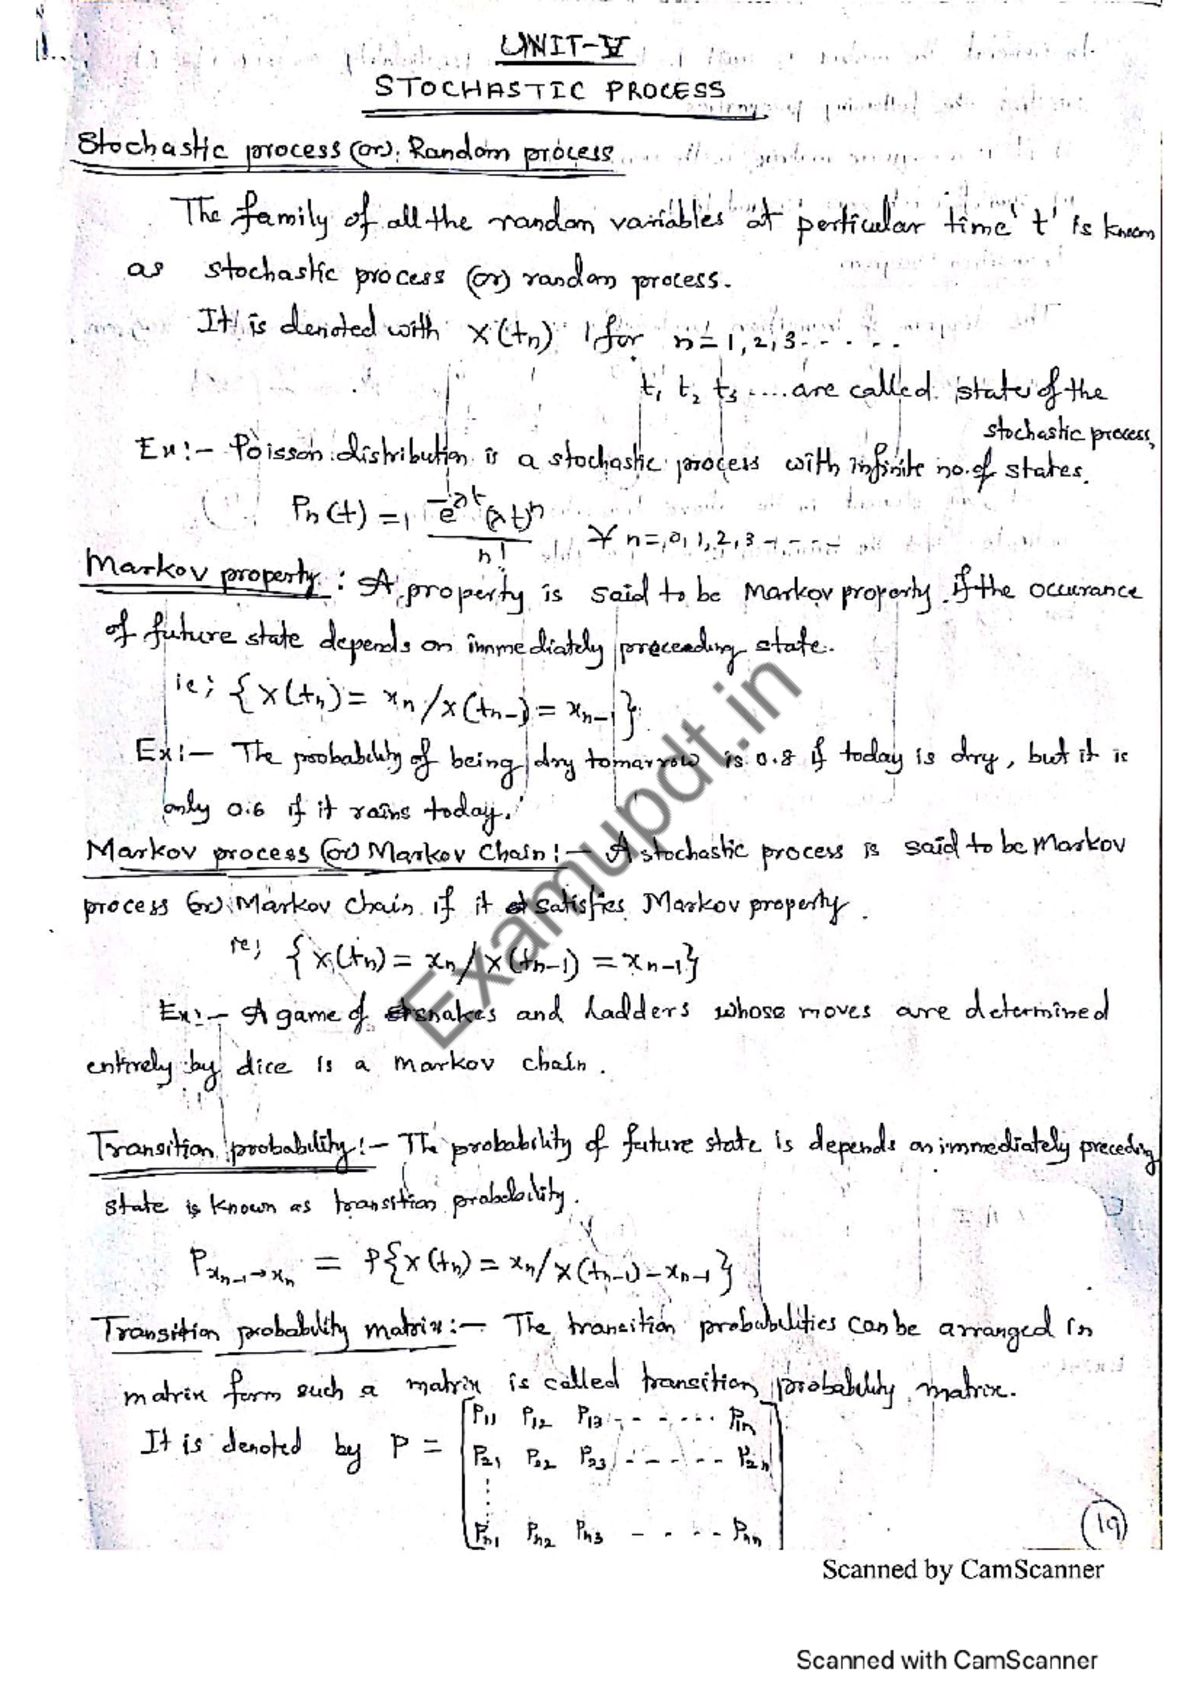 UNIT-V
STOCHASTIC PROCESS
Stochastic process (or) Random process
The family of all the random variables at perticular time 't' is known
as stochastic process (or) random process.
It is denoted with X(tn) for n=1,2,3.....
t1 t2 t3 .... are called state of the
stochastic process,
Ex:- Poisson distribution is a stochastic process with infinite no.of states.
Pn(t) = e^-λt (λt)^n / n! ∀ n=0,1,2,3-----
Markov property : A property is said to be Markov property if the occurance
of future state depends on immediately preceeding state.
ie; {X(tn) = xn/X(tn-1) = xn-1}
Ex:- The probability of being dry tomarrow is 0.8 if today is dry, but it is
only 0.6 if it rains today.
Markov process (or) Markov chain:- A stochastic process is said to be Markov
process (or) Markov chain if it satisfies Markov property.
ie; {X(tn) = xn/X(tn-1) = xn-1}
Ex:- A game of snakes and ladders whose moves are determined
entirely by dice is a Markov chain.
Transition probability:- The probability of future state is depends on immediately preceding
state is known as transition probability.
Pxn-1→xn = P{X(tn) = xn/X(tn-1) - xn-1}
Transition probability matrix:- The transition probabilities can be arranged in
matrix form such a matrix is called transition probability matrix.
It is denoted by P = [P11 P12 P13 ------ P1n
P21 P22 P23 ------ P2n
⋮
Pn1 Pn2 Pn3 ------ Pnn]
19
Examupdt.in
Scanned by CamScanner
Scanned with CamScanner